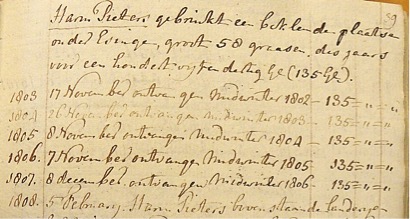 39
Harm Pieters gebruikt een beklemde plaatse
onder Esinge, groot 58 graasen, des jaars
voor een hondert vyf en dertig gl (135 gl).
1803 17 November ontvangen midwinter 1802 - 135 = " = "
1804 26 November ontvangen midwinter 1803 - 135 = " = "
1805 8 November ontvangen midwinter 1804 - 135 = " = "
1806. 7 November ontvangen midwinter 1805 135 = " = "
1807. 8 december ontvangen midwinter 1806 - 135 = " = "
1808. 5 February Harm Pieters bovenstaande